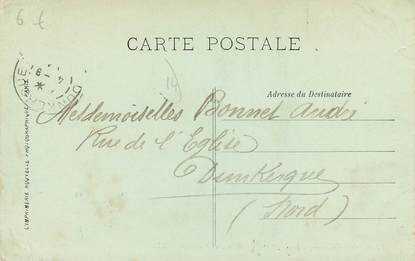 6 €
CARTE POSTALE
14
Adresse du Destinataire
Mesdemoiselles Bonnet André
Rue de l'Eglise
Dunkerque
(Nord)
DUNKERQUE
L'IMPRIMERIE NOUVELLE PHOTOGRAPHIQUE